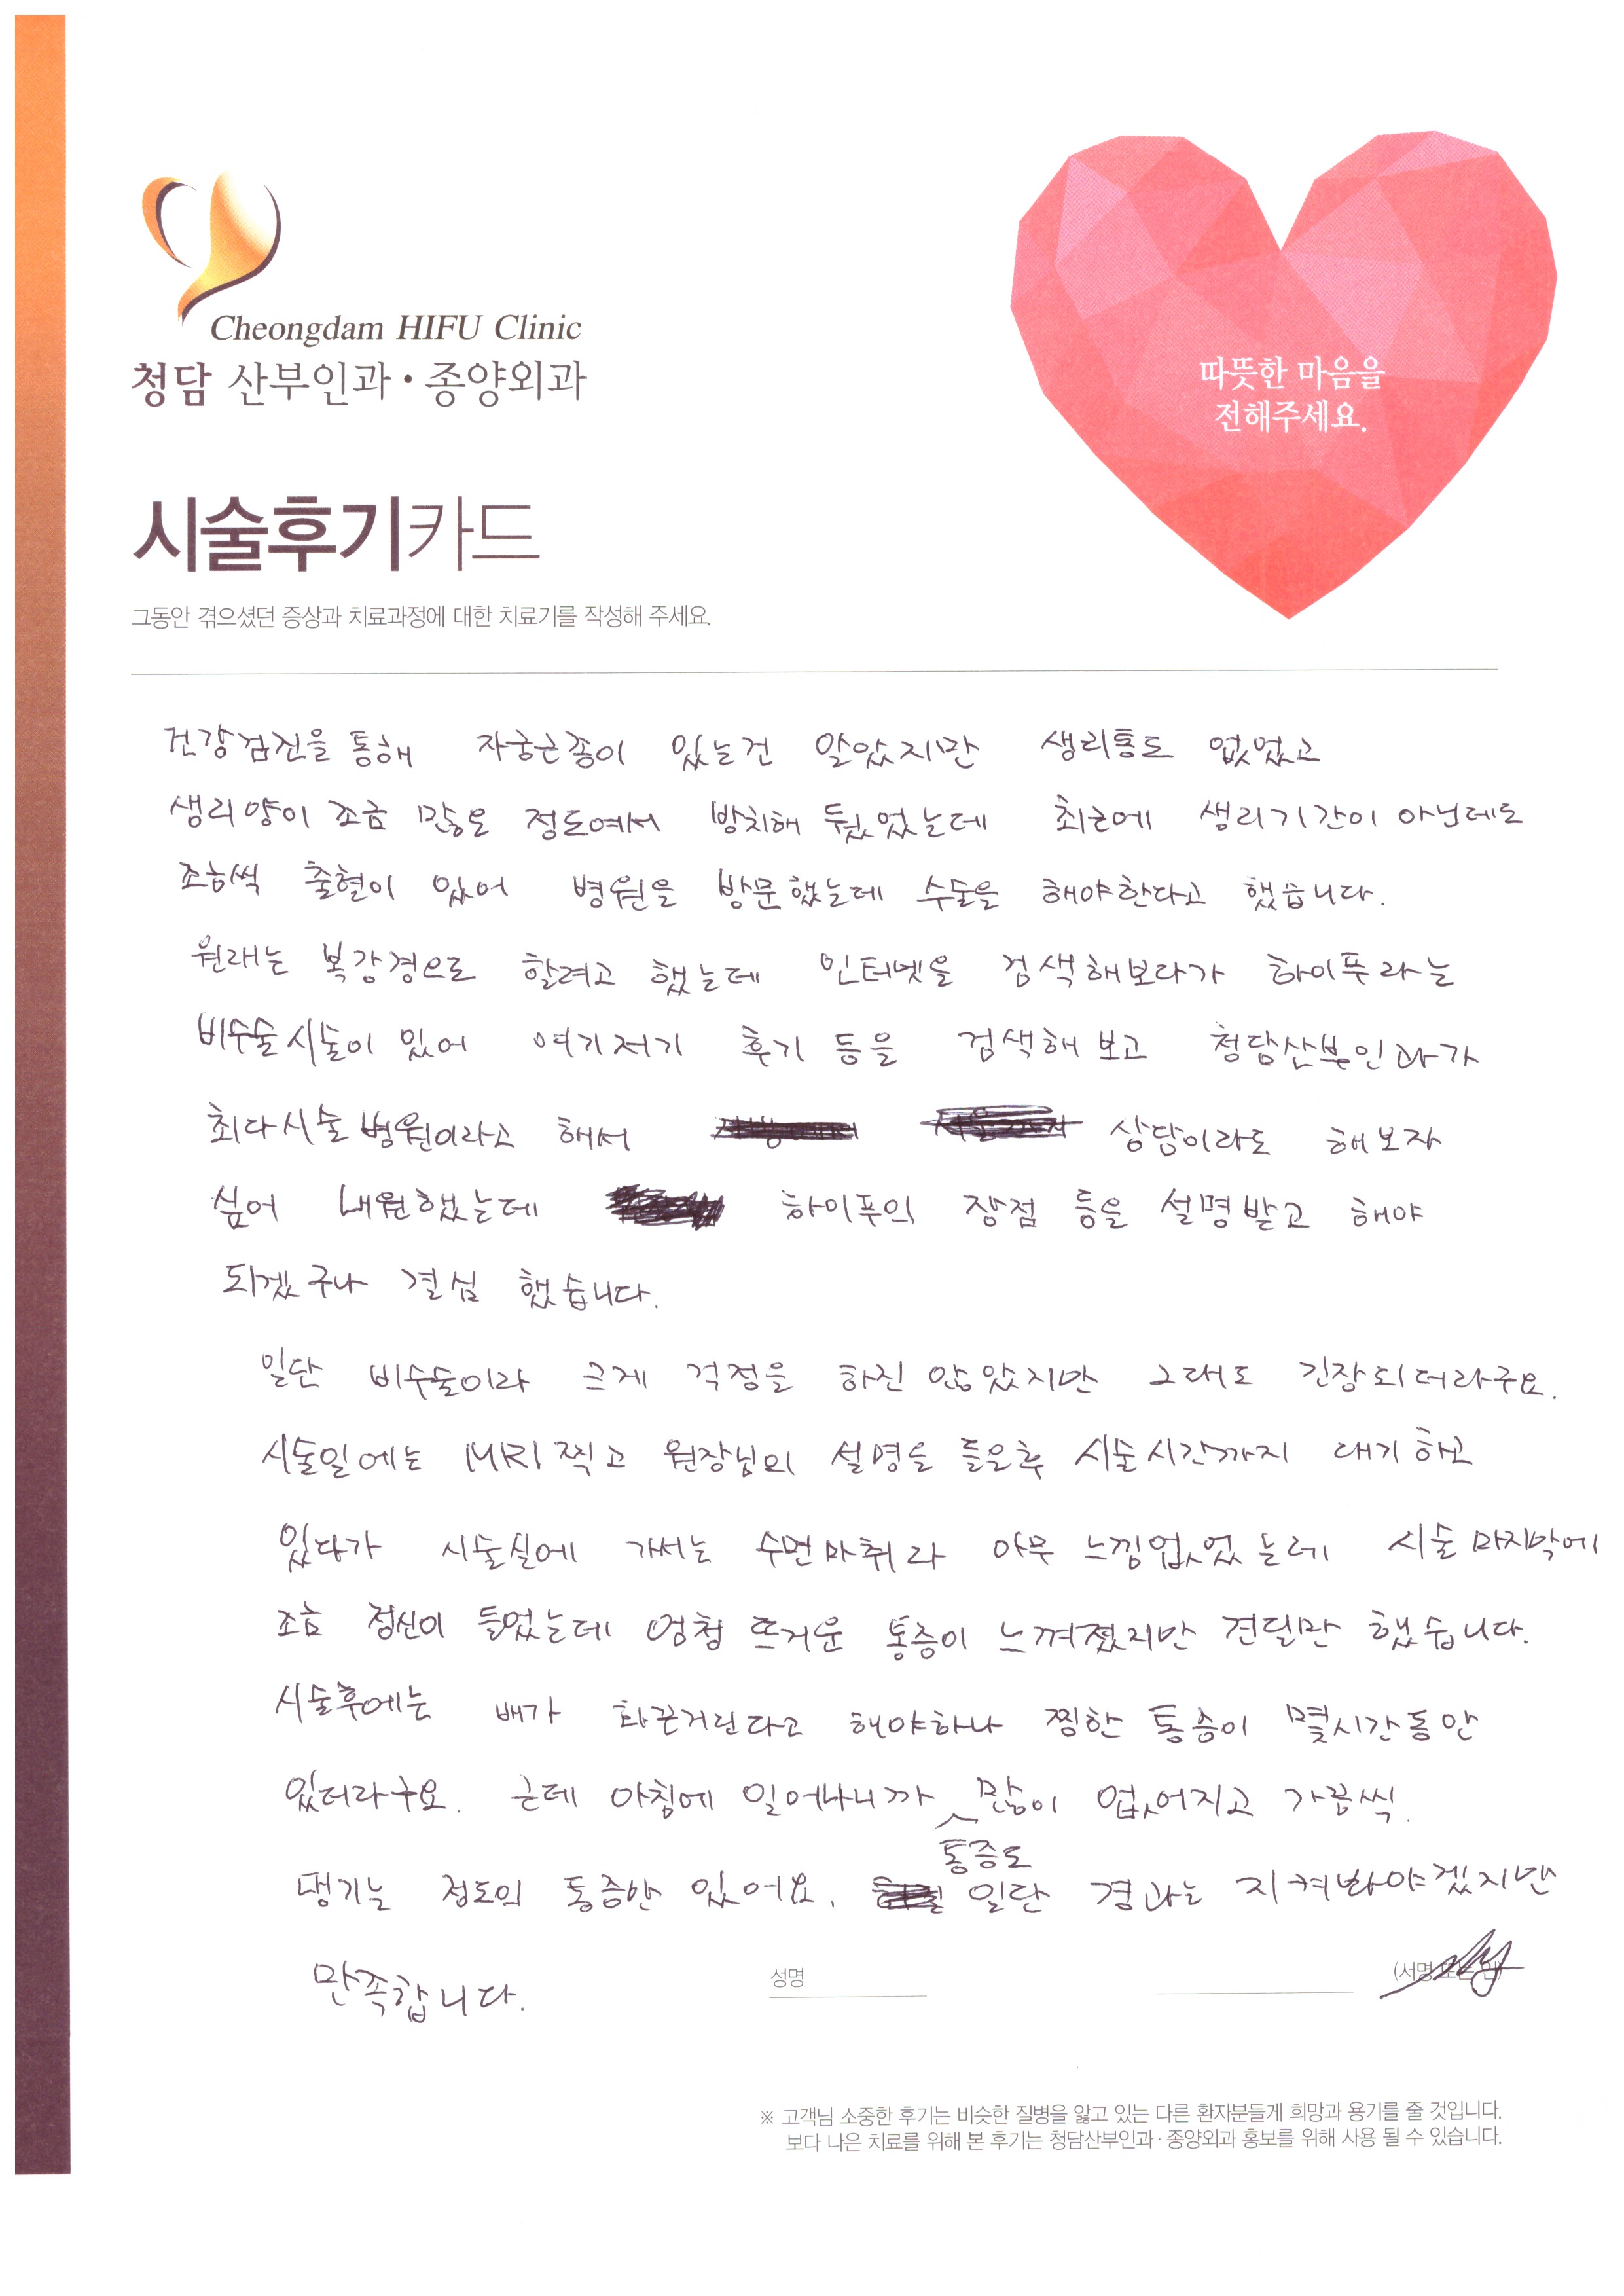 Cheongdam HIFU Clinic
청담 산부인과·종양외과
따뜻한 마음을
전해주세요.
시술후기카드
그동안 겪으셨던 증상과 치료과정에 대한 치료기를 작성해 주세요.
건강검진을 통해 자궁근종이 있는건 알았지만 생리통도 없었고
생리양이 조금 많은 정도여서 방치해 뒀었는데 최근에 생리기간이 아닌데도
조금씩 출혈이 있어 병원을 방문했는데 수술을 해야한다고 했습니다.
원래는 복강경으로 할려고 했는데 인터넷을 검색해보다가 하이푸라는
비수술 시술이 있어 여기저기 후기 등을 검색해 보고 청담산부인과가
최다시술 병원이라고 해서 상담이라도 해보자
싶어 내원했는데 하이푸의 장점 등을 설명받고 해야
되겠구나 결심 했습니다.
일단 비수술이라 크게 걱정을 하진 않았지만 그래도 긴장되더라구요.
시술일에는 MRI 찍고 원장님의 설명을 들은후 시술시간까지 대기하고
있다가 시술실에 가서는 수면마취라 아무 느낌없었는데 시술 마지막에
조금 정신이 들었는데 엄청 뜨거운 통증이 느껴졌지만 견딜만 했습니다.
시술후에는 배가 화끈거린다고 해야하나 찡한 통증이 몇시간동안
있더라구요. 근데 아침에 일어나니까 통증도 많이 없어지고 가끔씩.
땡기는 정도의 통증만 있어요. 일단 경과는 지켜봐야겠지만
만족합니다.
성명 (서명 또는 인)
※ 고객님 소중한 후기는 비슷한 질병을 앓고 있는 다른 환자분들게 희망과 용기를 줄 것입니다.
보다 나은 치료를 위해 본 후기는 청담산부인과·종양외과 홍보를 위해 사용 될 수 있습니다.